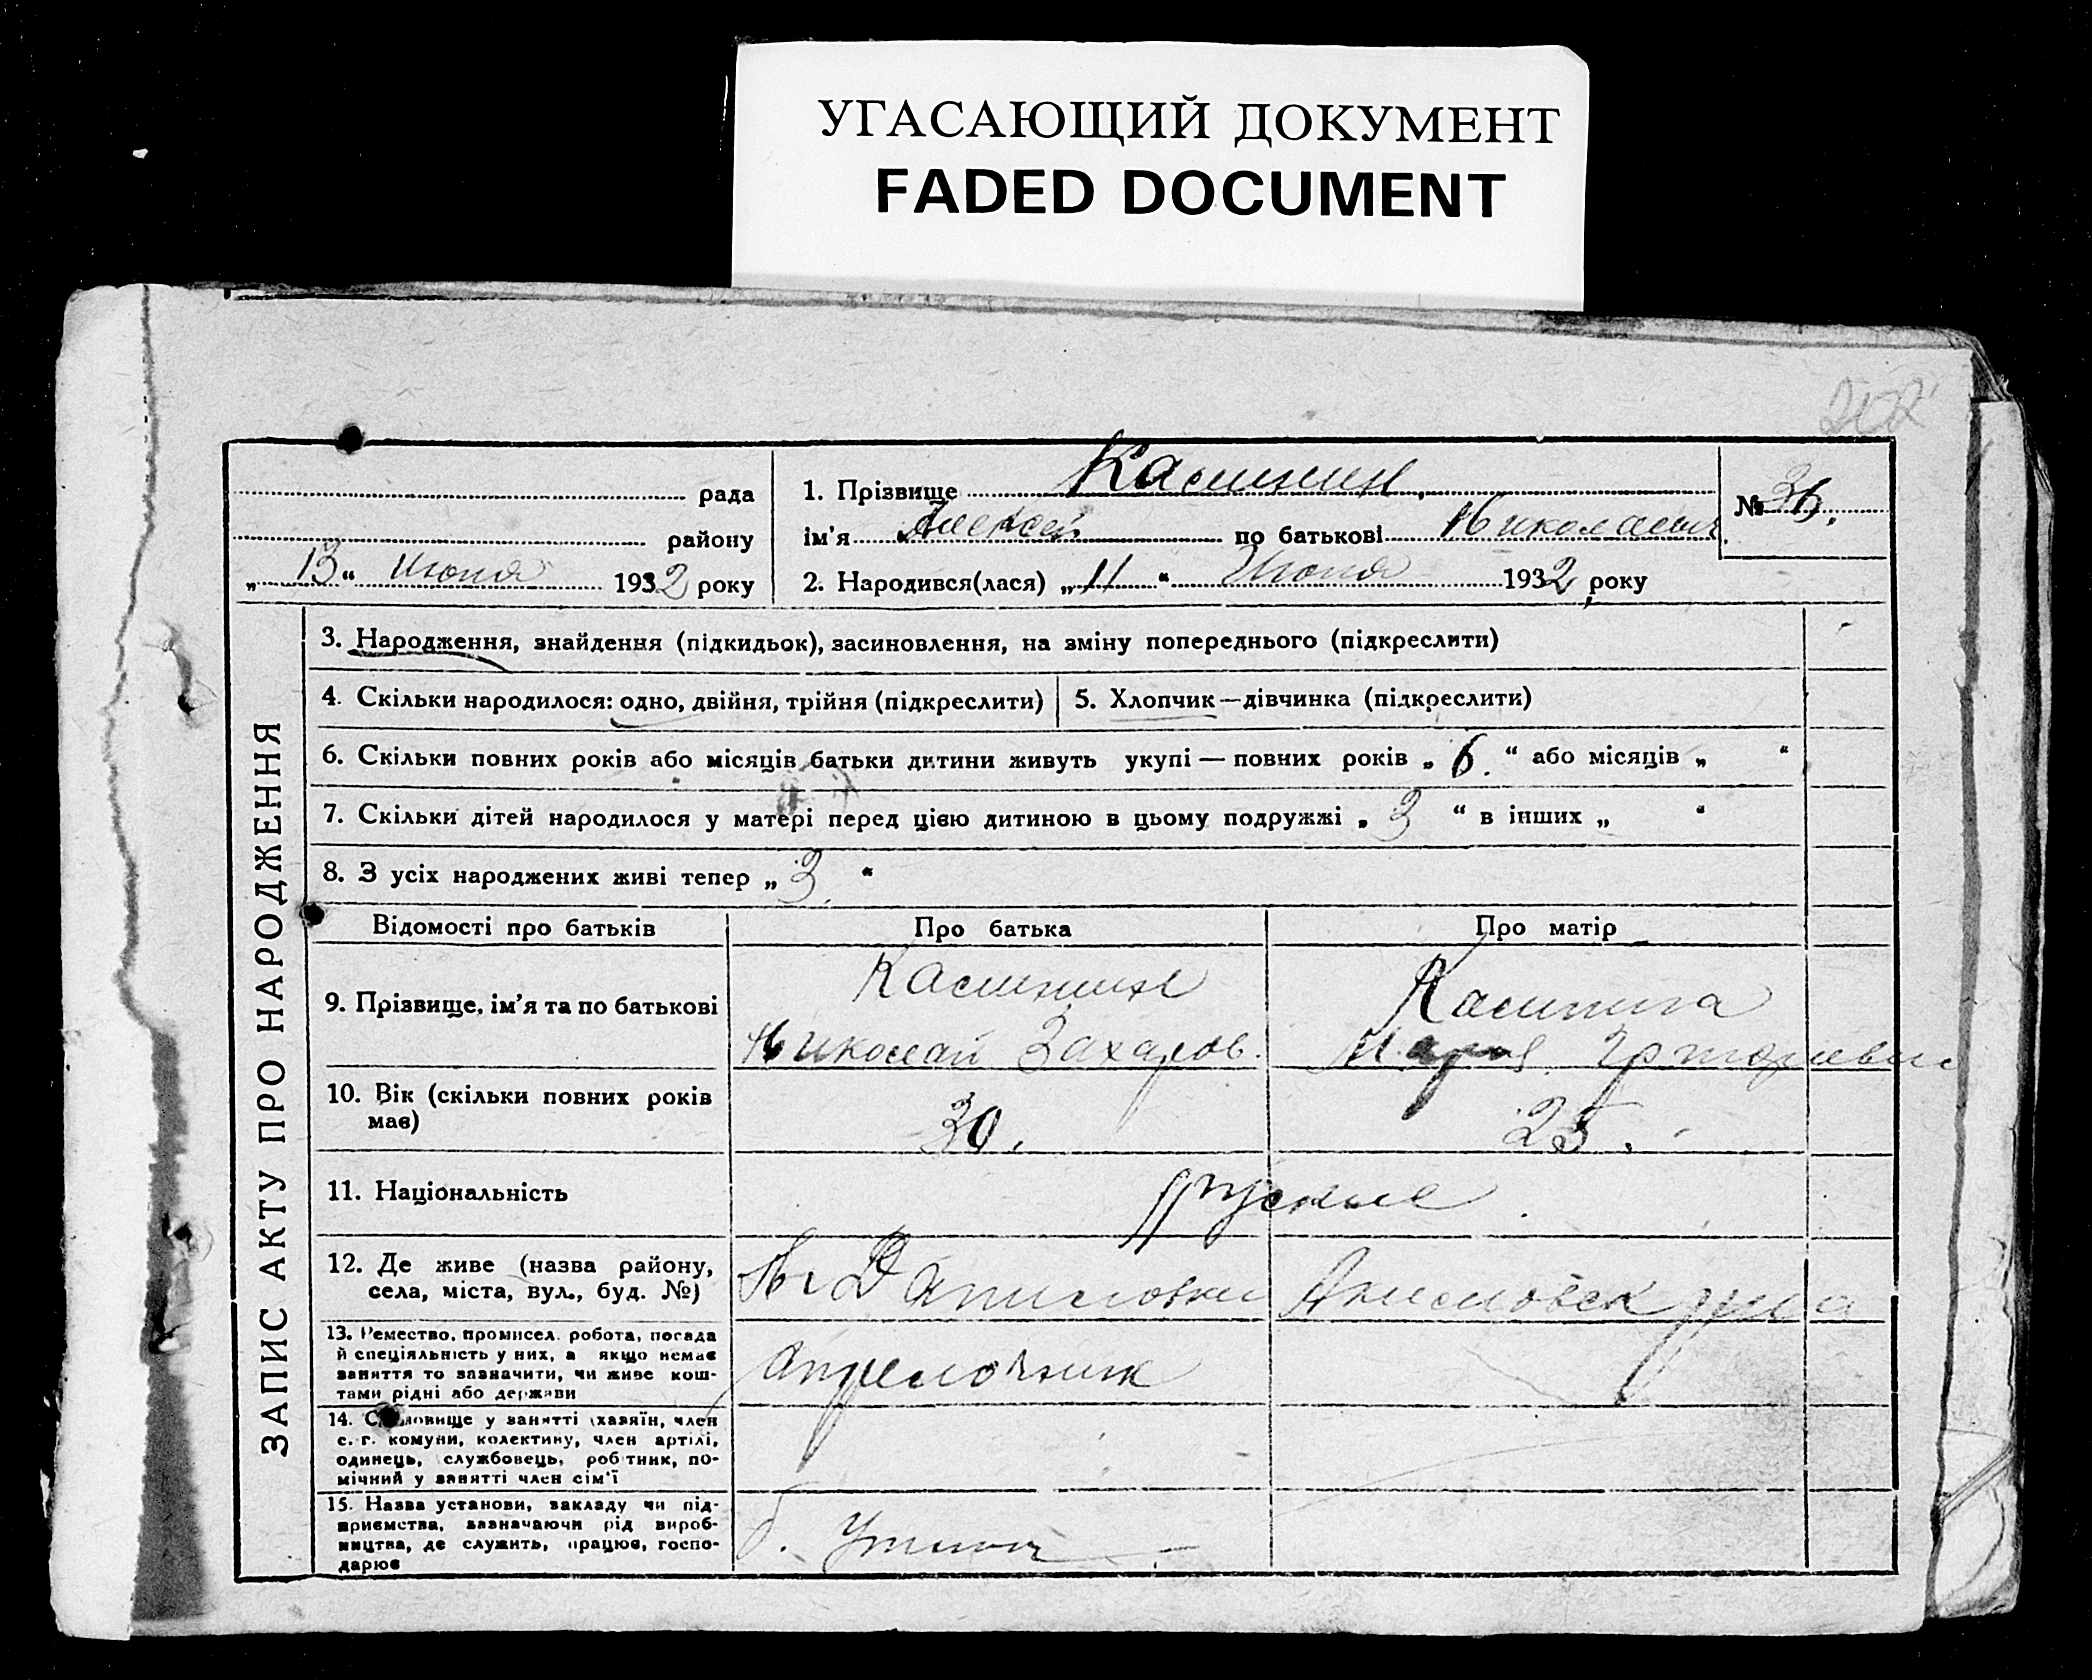 УГАСАЮЩИЙ ДОКУМЕНТ
FADED DOCUMENT
202
ЗАПИС АКТУ ПРО НАРОДЖЕННЯ
рада
району
„ 13 “ Июня 1932 року
1. Прізвище Калинин
ім'я Алексей по батькові Николаевич
2. Народився(лася) „ 11 “ Июня 1932 року
№ 36.
3. Народження, знайдення (підкидьок), засиновлення, на зміну попереднього (підкреслити)
4. Скільки народилося: одно, двійня, трійня (підкреслити)
5. Хлопчик — дівчинка (підкреслити)
6. Скільки повних років або місяців батьки дитини живуть укупі — повних років „ 6. “ або місяців „ “
7. Скільки дітей народилося у матері перед цією дитиною в цьому подружжі „ 3 “ в інших „ “
8. З усіх народжених живі тепер „ 3. “
Відомості про батьків
Про батька
Про матір
9. Прізвище, ім'я та по батькові
Калинин
Николай Захаров.
Калинина
Мария
10. Вік (скільки повних років
має)
30.
25.
11. Національність
русские
12. Де живе (назва району,
села, міста, вул., буд. №)
13. Ремество, промисел. робота, посада
й спеціяльність у них, а якщо немає
заняття то зазначити, чи живе кош-
тами рідні або держави
14. Становище у занятті (хазяїн, член
с.-г. комуни, колективу, член артілі,
одинець, службовець, робітник, по-
мічний у занятті член сім'ї
15. Назва установи, закладу чи під-
приємства, зазначаючи рід вироб-
ництва, де служить, працює, госпо-
дарює